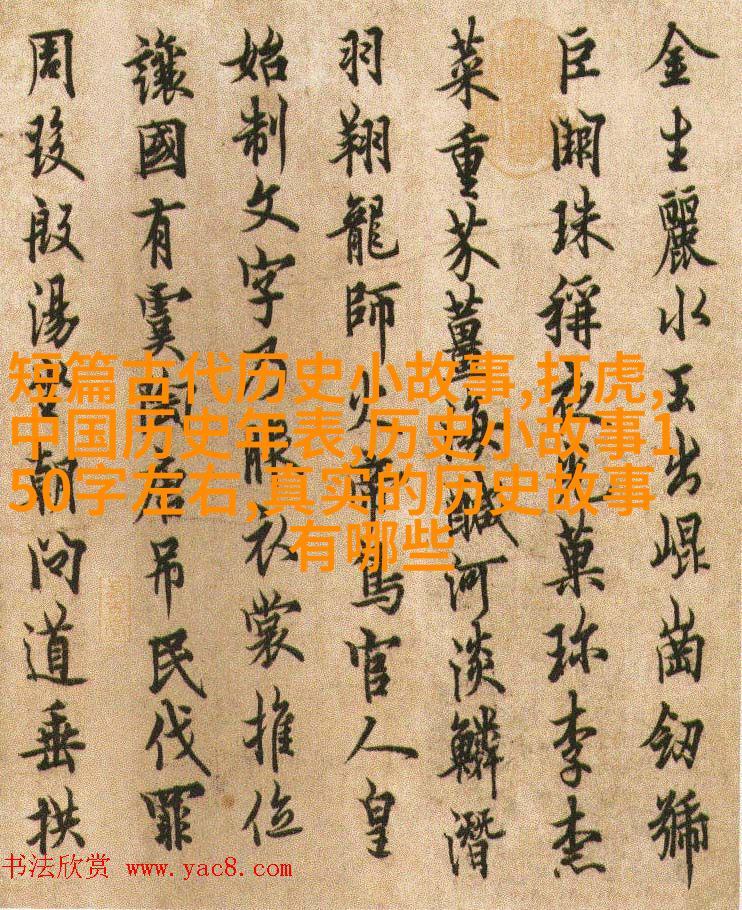 金生麗水玉出崐崗劒號
巨闕珠稱夜光菓珎李柰
菜重芥薑海醎河淡鱗潛
羽翔龍師火帝鳥官人皇
始制文字乃服衣裳推位
讓國有虞陶唐吊民伐罪
周發殷湯坐朝問道垂拱
短篇古代历史小故事,打虎,
中国历史年表,历史小故事1
50字左右,真实的历史故事
有哪些
书法欣赏 www.yac8.com